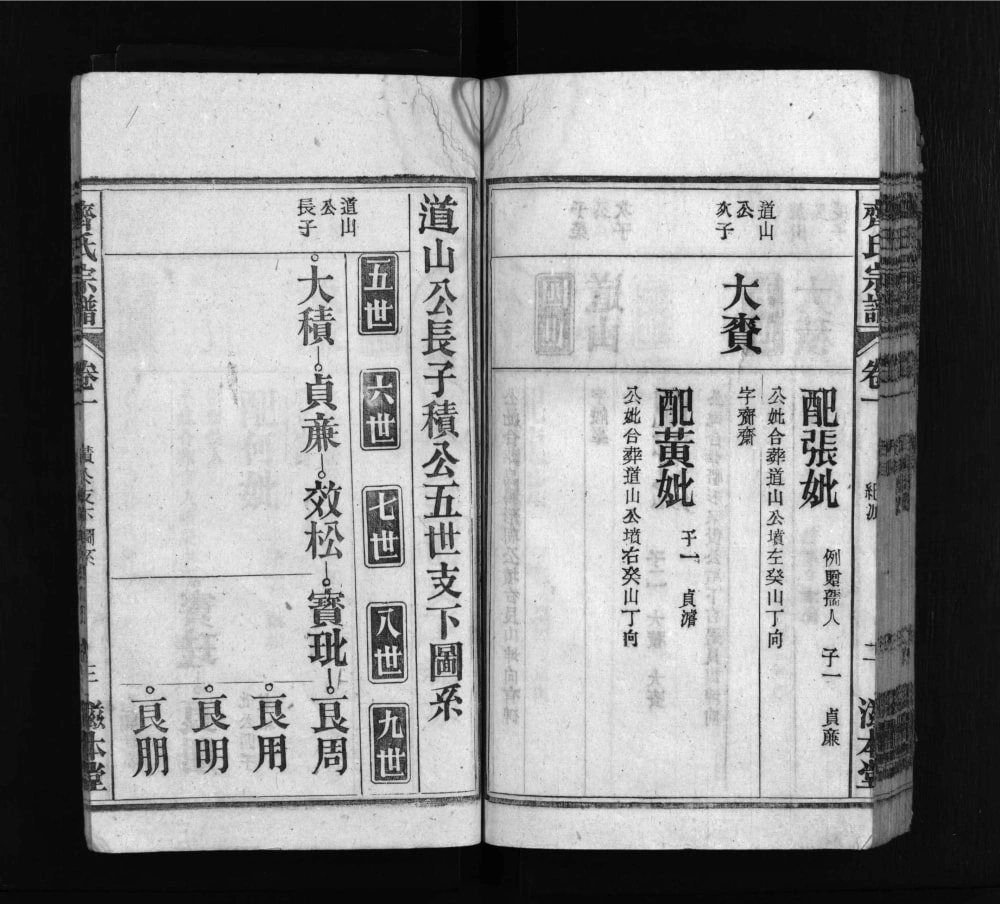 齊氏宗譜
卷一
二
滋本堂
配張妣
例贈孺人 子一 貞廉
公妣合葬道山公墳左癸山丁向
道山
公
次子
大賚
字齋齋
配黃妣
子一 貞濬
公妣合葬道山公墳右癸山丁向
道山公長子積公五世支下圖系
五世 六世 七世 八世 九世
道山
公
長子
大積 貞廉 效松 寶玭 良周
良用
良明
良朋
齊氏宗譜
卷一
三
滋本堂